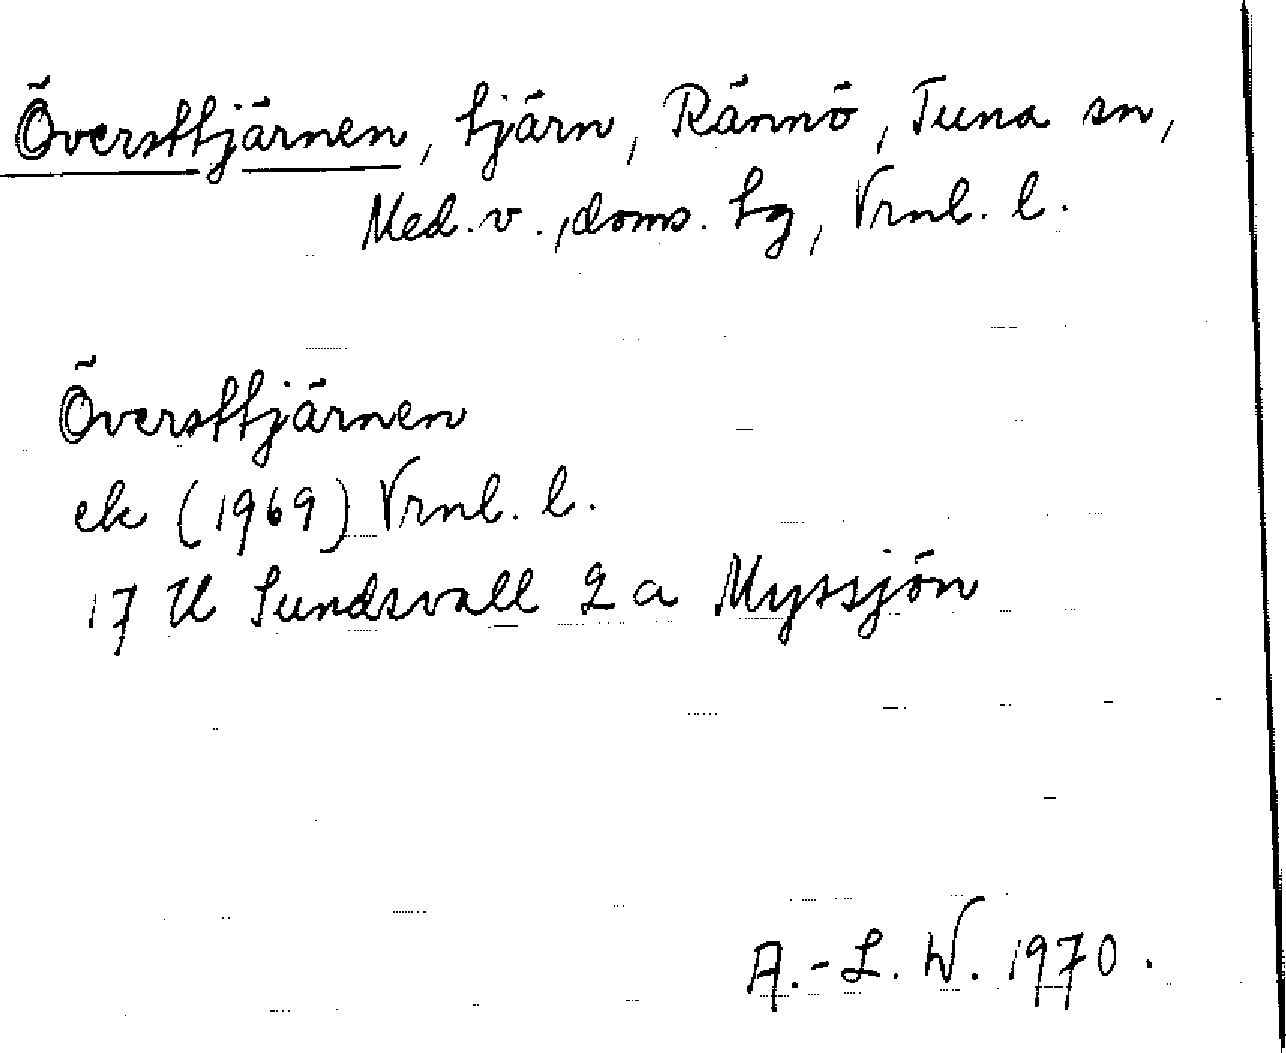 Översttjärnen, tjärn, Rännö, Tuna sn,
Med. v., doms. tg, Vrnl. l.
Översttjärnen
ek (1969) Vrnl. l.
17 H Sundsvall 2 a Myssjön
A.-L. W. 1970.